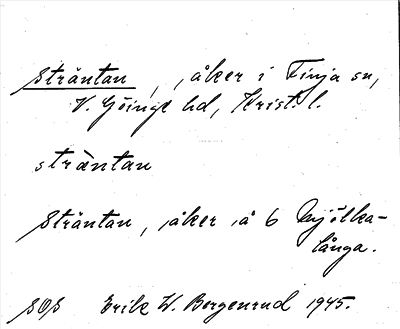 Sträntan, , åker i Finja sn,
V. Göinge hd, Krist. l.
sträntan
Sträntan, åker å 6 Mjölka-
långa.
SOS Erik W. Bergenrud 1945.